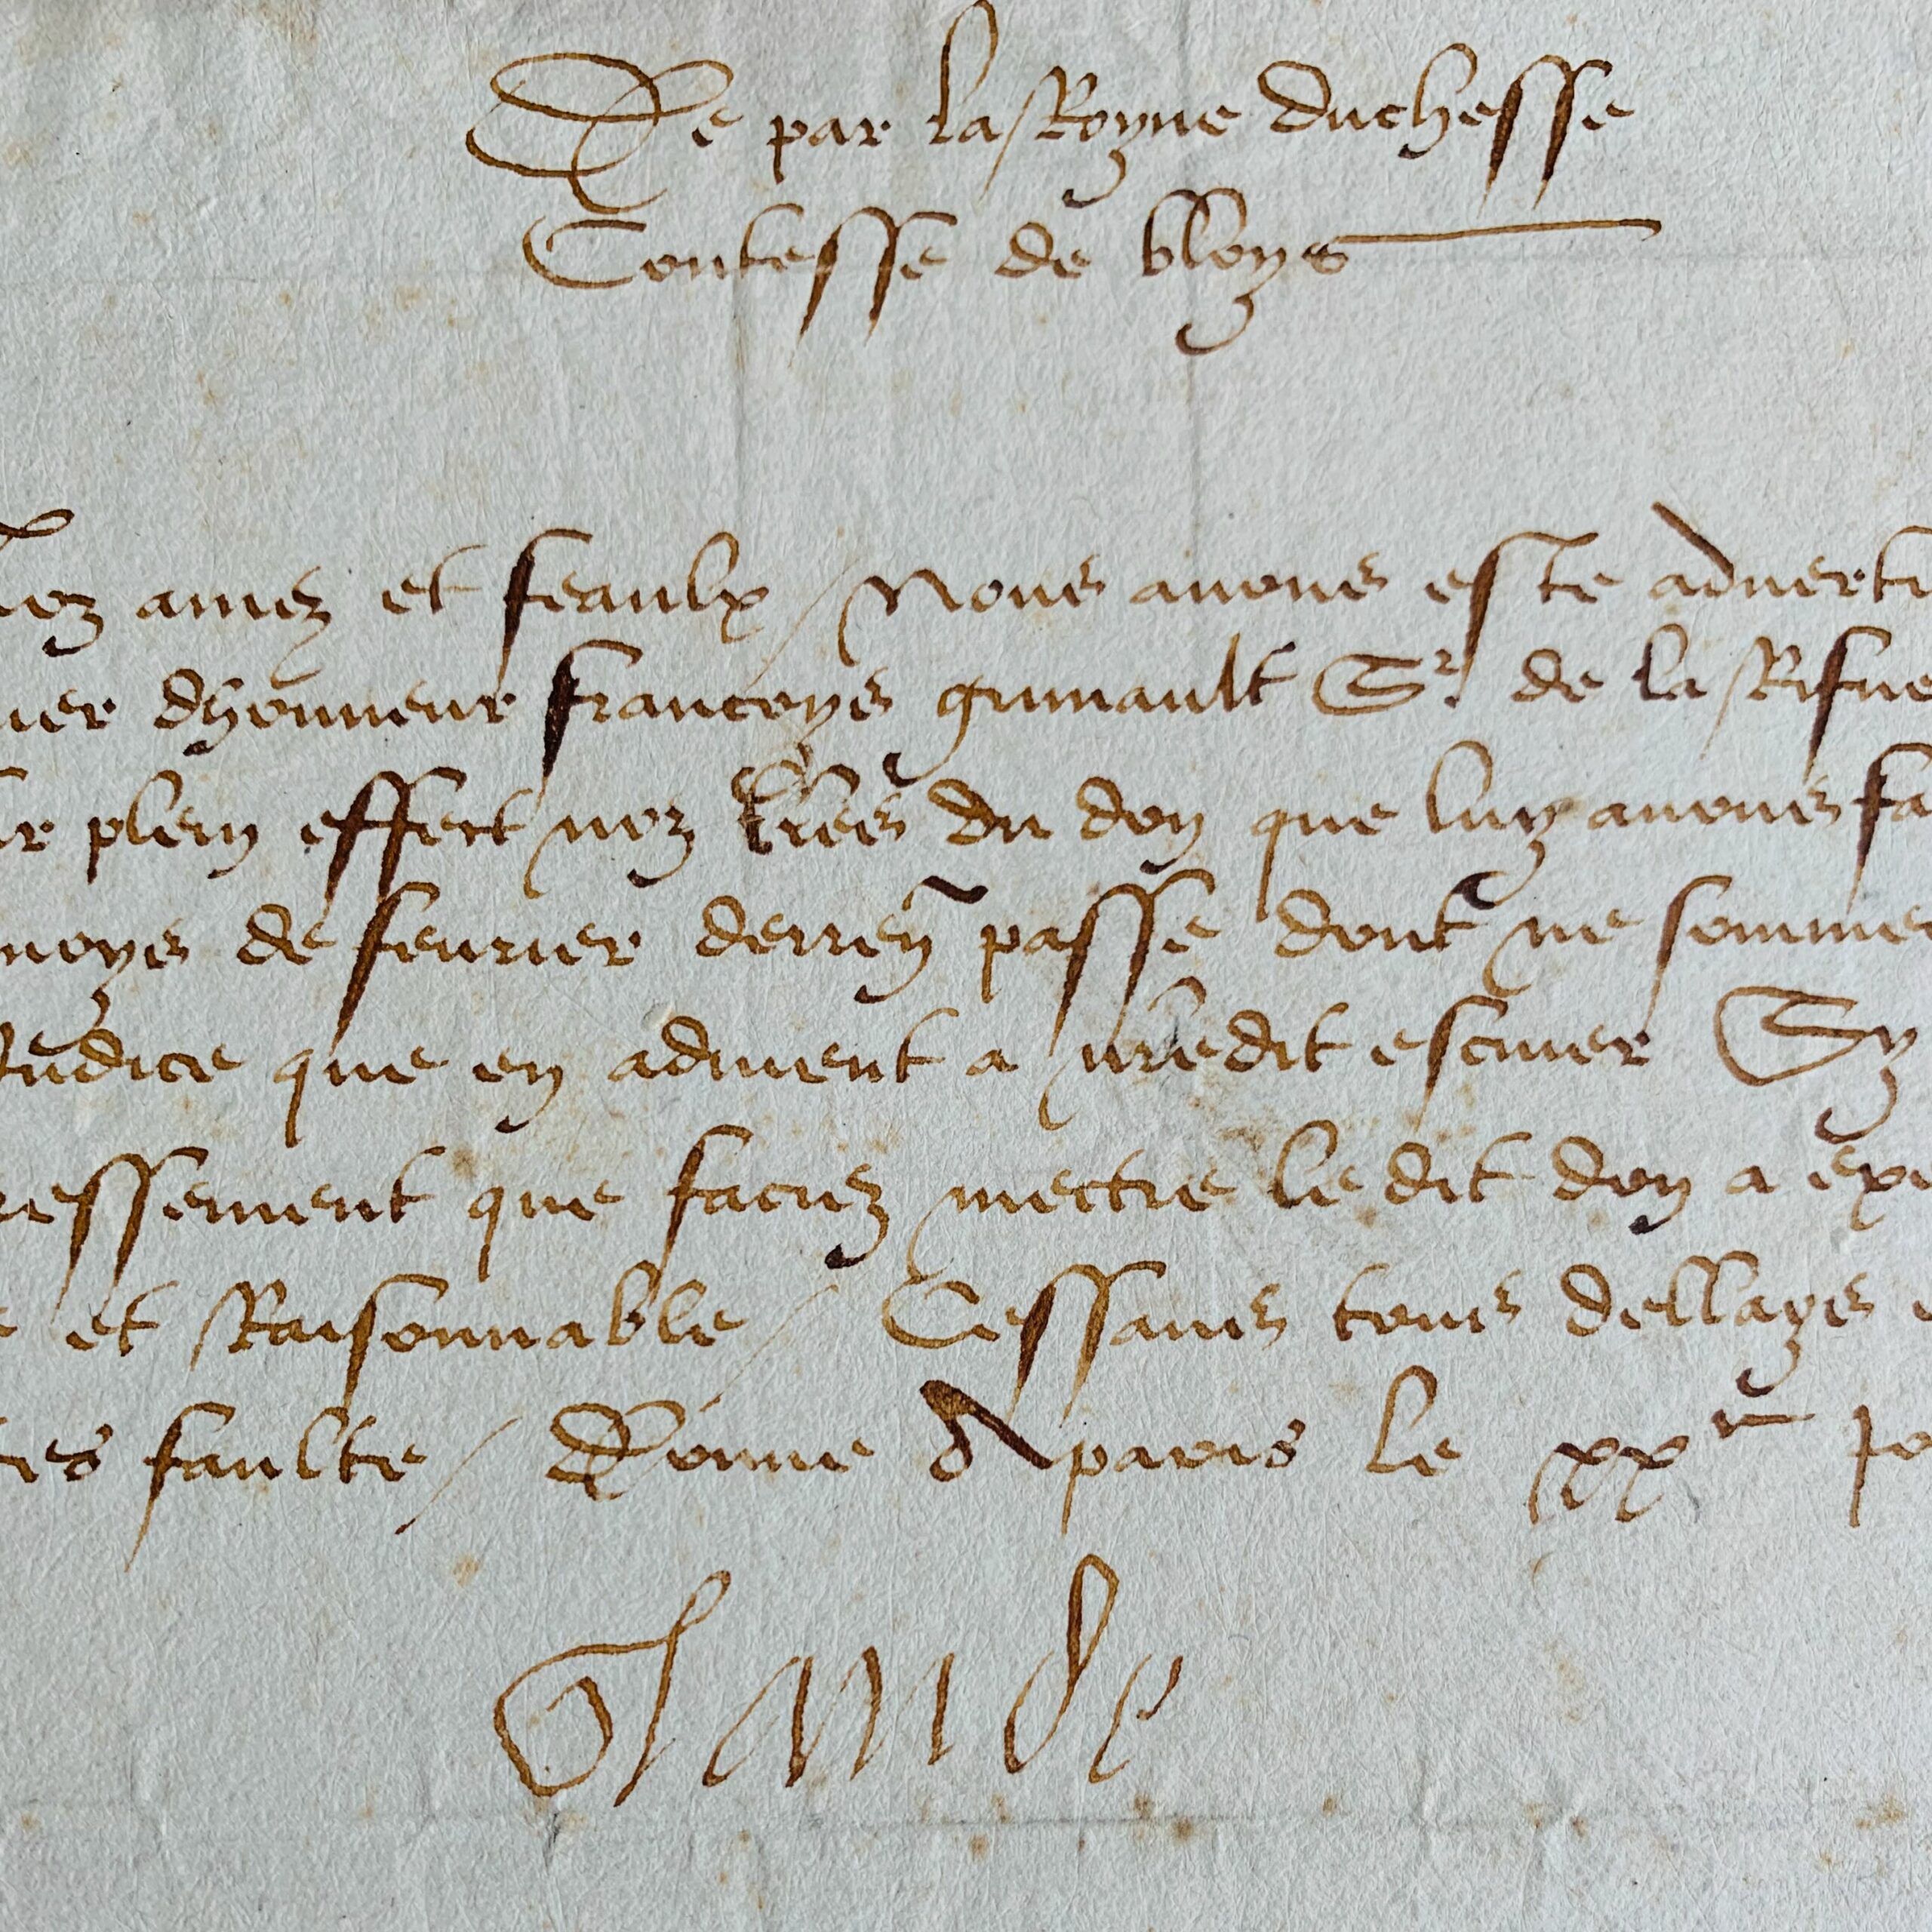 De par la Royne duchesse
Contesse de bloys
noz amez et feaulx / Nous auons este aduerti
uer dhonneur francoys grimault Sr de la Rifue
r plein effect noz lrẽs du don que luy auons fa
moys de feurier derreñ passe dont ne sommes
Judice que en aduient a nrẽdit escuier Sy
ressement que faciez mectre le dit don a exe
et Raisonnable / Cessans tous dellays e
res faulte / Donne A paris le xxe Jo
Claude